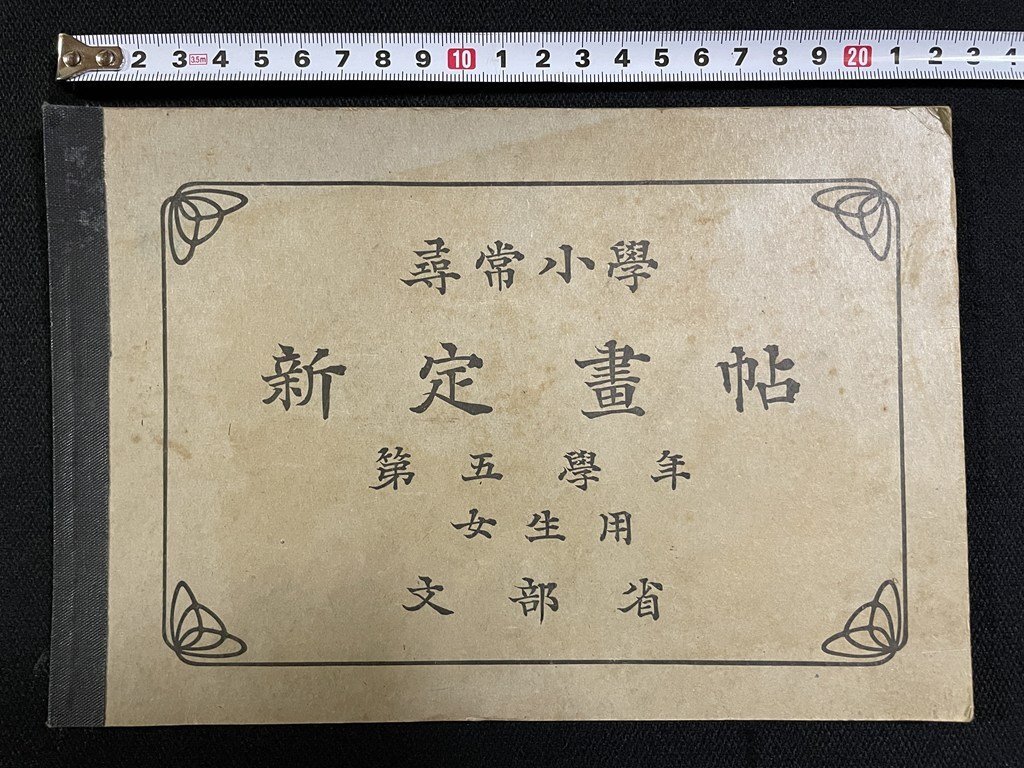 2 3 3.5m 4 5 6 7 8 9 10 1 2 3 4 5 6 7 8 9 20 1 2 3 4
尋常小學
新定畫帖
第五學年
女生用
文部省